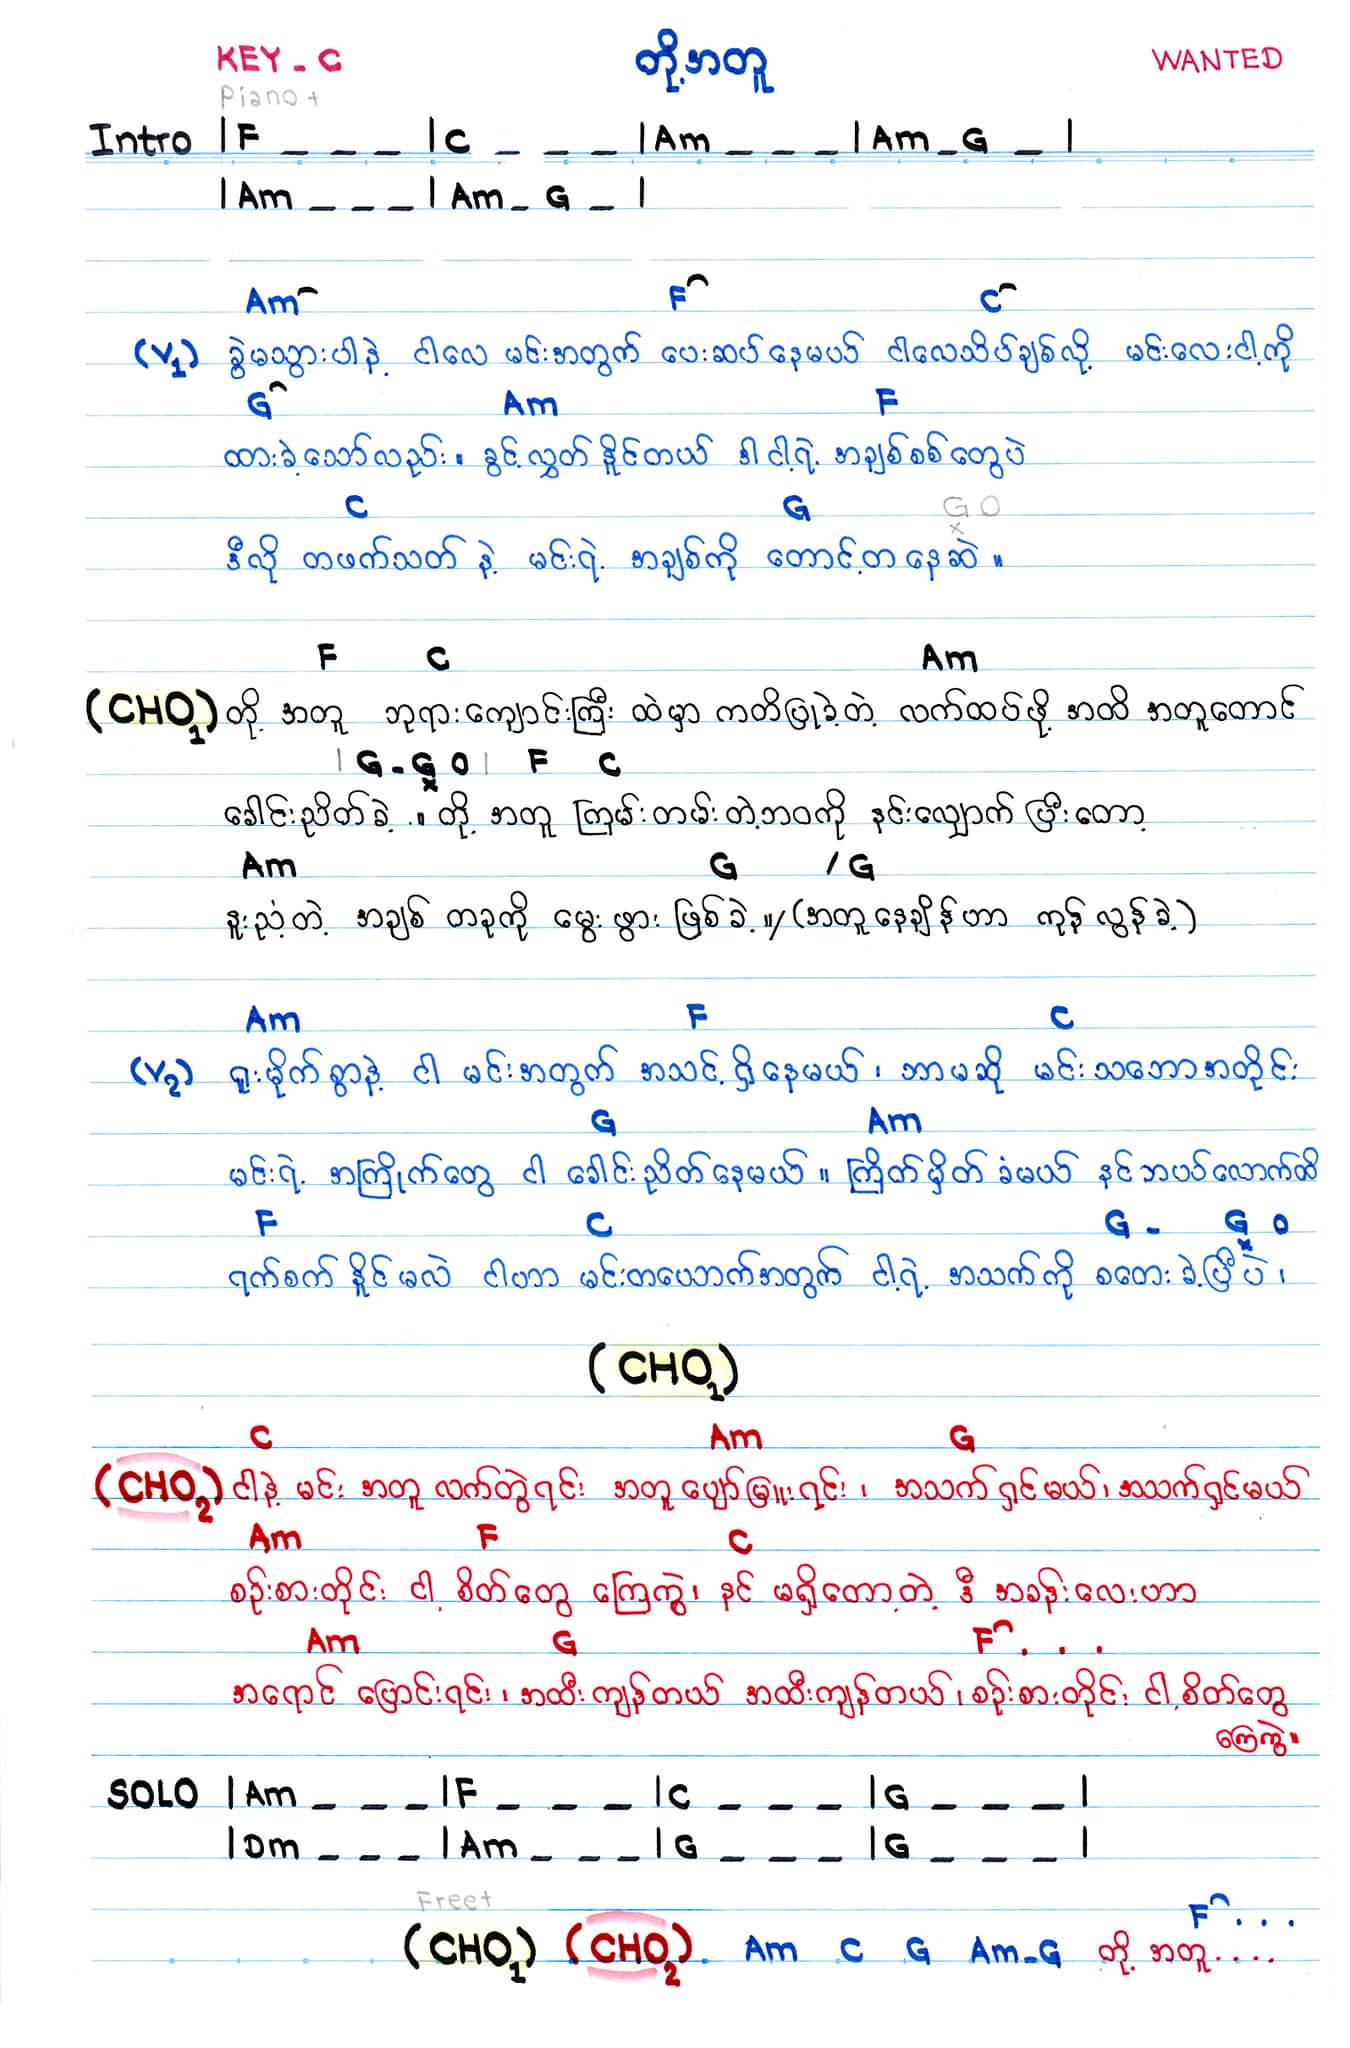 KEY - C တို့အတူ WANTED
Piano +
Intro | F _ _ _ | C _ _ _ | Am _ _ _ | Am _ G _ |
| Am _ _ _ | Am _ G _ |
Am F C
(V1) ခွဲမသွားပါနဲ့ ငါလေ မင်းအတွက် ပေးဆပ်နေမယ် ငါလေသိပ်ချစ်လို့ မင်းလေးငါ့ကို
G Am F
ထားခဲ့သော်လည်း။ ခွင့်လွှတ်နိုင်တယ် ဒါငါ့ရဲ့ အချစ်စစ်တွေပဲ
C G G 0
ဒီလို တဖက်သတ်နဲ့ မင်းရဲ့ အချစ်ကို တောင့်တနေဆဲ။
F C Am
(CHO1) တို့ အတူ ဘုရားကျောင်းကြီး ထဲမှာ ကတိပြုခဲ့တဲ့ လက်ထပ်ဖို့ အထိ အတူတောင်
| G - G 0 | F C
ခေါင်းညိတ်ခဲ့ .။ တို့ အတူ ကြမ်းတမ်းတဲ့ဘဝကို နင်းလျှောက် ပြီးတော့
Am G / G
နူးညံ့တဲ့ အချစ် တခုကို မွေးဖွား ဖြစ်ခဲ့။/(အတူနေချိန်ဟာ ကုန်လွန်ခဲ့)
Am F C
(V2) ရူးမိုက်စွာနဲ့ ငါ မင်းအတွက် အသင့်ရှိနေမယ်၊ ဘာမဆို မင်းသဘောအတိုင်း
G Am
မင်းရဲ့ အကြိုက်တွေ ငါ ခေါင်းညိတ်နေမယ်။ ကြိတ်မှိတ်ခံမယ် နင်ဘယ်လောက်ထိ
F C G - G 0
ရက်စက်နိုင်မလဲ ငါဟာ မင်းတယောက်အတွက် ငါ့ရဲ့ အသက်ကို စတေးခဲ့ပြီပဲ၊
(CHO1)
C Am G
(CHO2) ငါနဲ့ မင်း အတူ လက်တွဲရင်း အတူပျော်မြူးရင်း၊ အသက်ရှင်မယ်၊အသက်ရှင်မယ်
Am F C
စဉ်းစားတိုင်း ငါ့ စိတ်တွေ ကြေကွဲ၊ နင် မရှိတော့တဲ့ ဒီ အခန်းလေးဟာ
Am G F . . .
အရောင် ပြောင်းရင်း၊အထီးကျန်တယ် အထီးကျန်တယ်၊စဉ်းစားတိုင်း ငါ့စိတ်တွေ
ကြေကွဲ။
SOLO | Am _ _ _ | F _ _ _ | C _ _ _ | G _ _ _ |
| Dm _ _ _ | Am _ _ _ | G _ _ _ | G _ _ _ |
Free+ F . . .
(CHO1) (CHO2) Am C G Am-G တို့ အတူ....